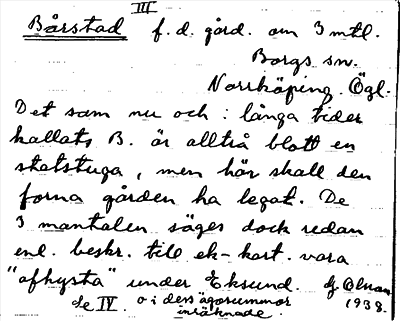 III
Bårstad f. d. gård. om 3 mtl.
Borgs sn.
Norrköping. Ögl.
Det som nu och i långa tider
kallats B. är alltså blott en
statstuga, men här skall den
forna gården ha legat. De
3 mantalen säges dock redan
enl. beskr. till ek-kart. vara
"afhysta" under Eksund.
se IV. o i dess ägosummor 1938.
inräknade.